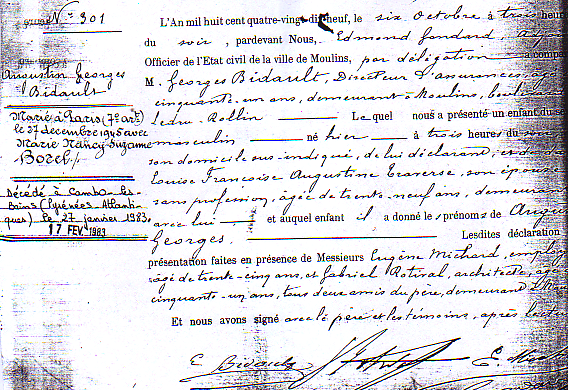 N° 301
Augustin Georges
Bidault
Marié à Paris (7e arrt)
le 27 décembre 1945 avec
Marie Nancy Suzanne
Borel
Décédé à Cambo-les-
Bains (Pyrénées Atlanti-
ques) le 27 janvier 1983.
17 FEV. 1983
L'An mil huit cent quatre-vingt-dix-neuf, le six Octobre à trois heur
du soir, pardevant Nous, Edmond Gandard
Officier de l'Etat civil de la ville de Moulins, par délégation a comp
M. Georges Bidault, Directeur d'assurances, âgé
cinquante-un ans, demeurant à Moulins, boulevard
Ledru-Rollin Le quel nous a présenté un enfant du s
masculin né hier à trois heures du soir
son domicile sus-indiqué, de lui déclarant, et de
Louise Françoise Augustine Traverse, son épouse
sans profession, âgée de trente-neuf ans, demeura
avec lui et auquel enfant il a donné le prénoms de Augu
Georges. Lesdites déclaration
présentation faites en présence de Messieurs Eugène Michard, employé
âgé de trente-cinq ans, et Gabriel architecte, âgé
cinquante-un ans, tous deux amis du père, demeurant à Mou
Et nous avons signé avec le père et les témoins, après lecture
Bidault